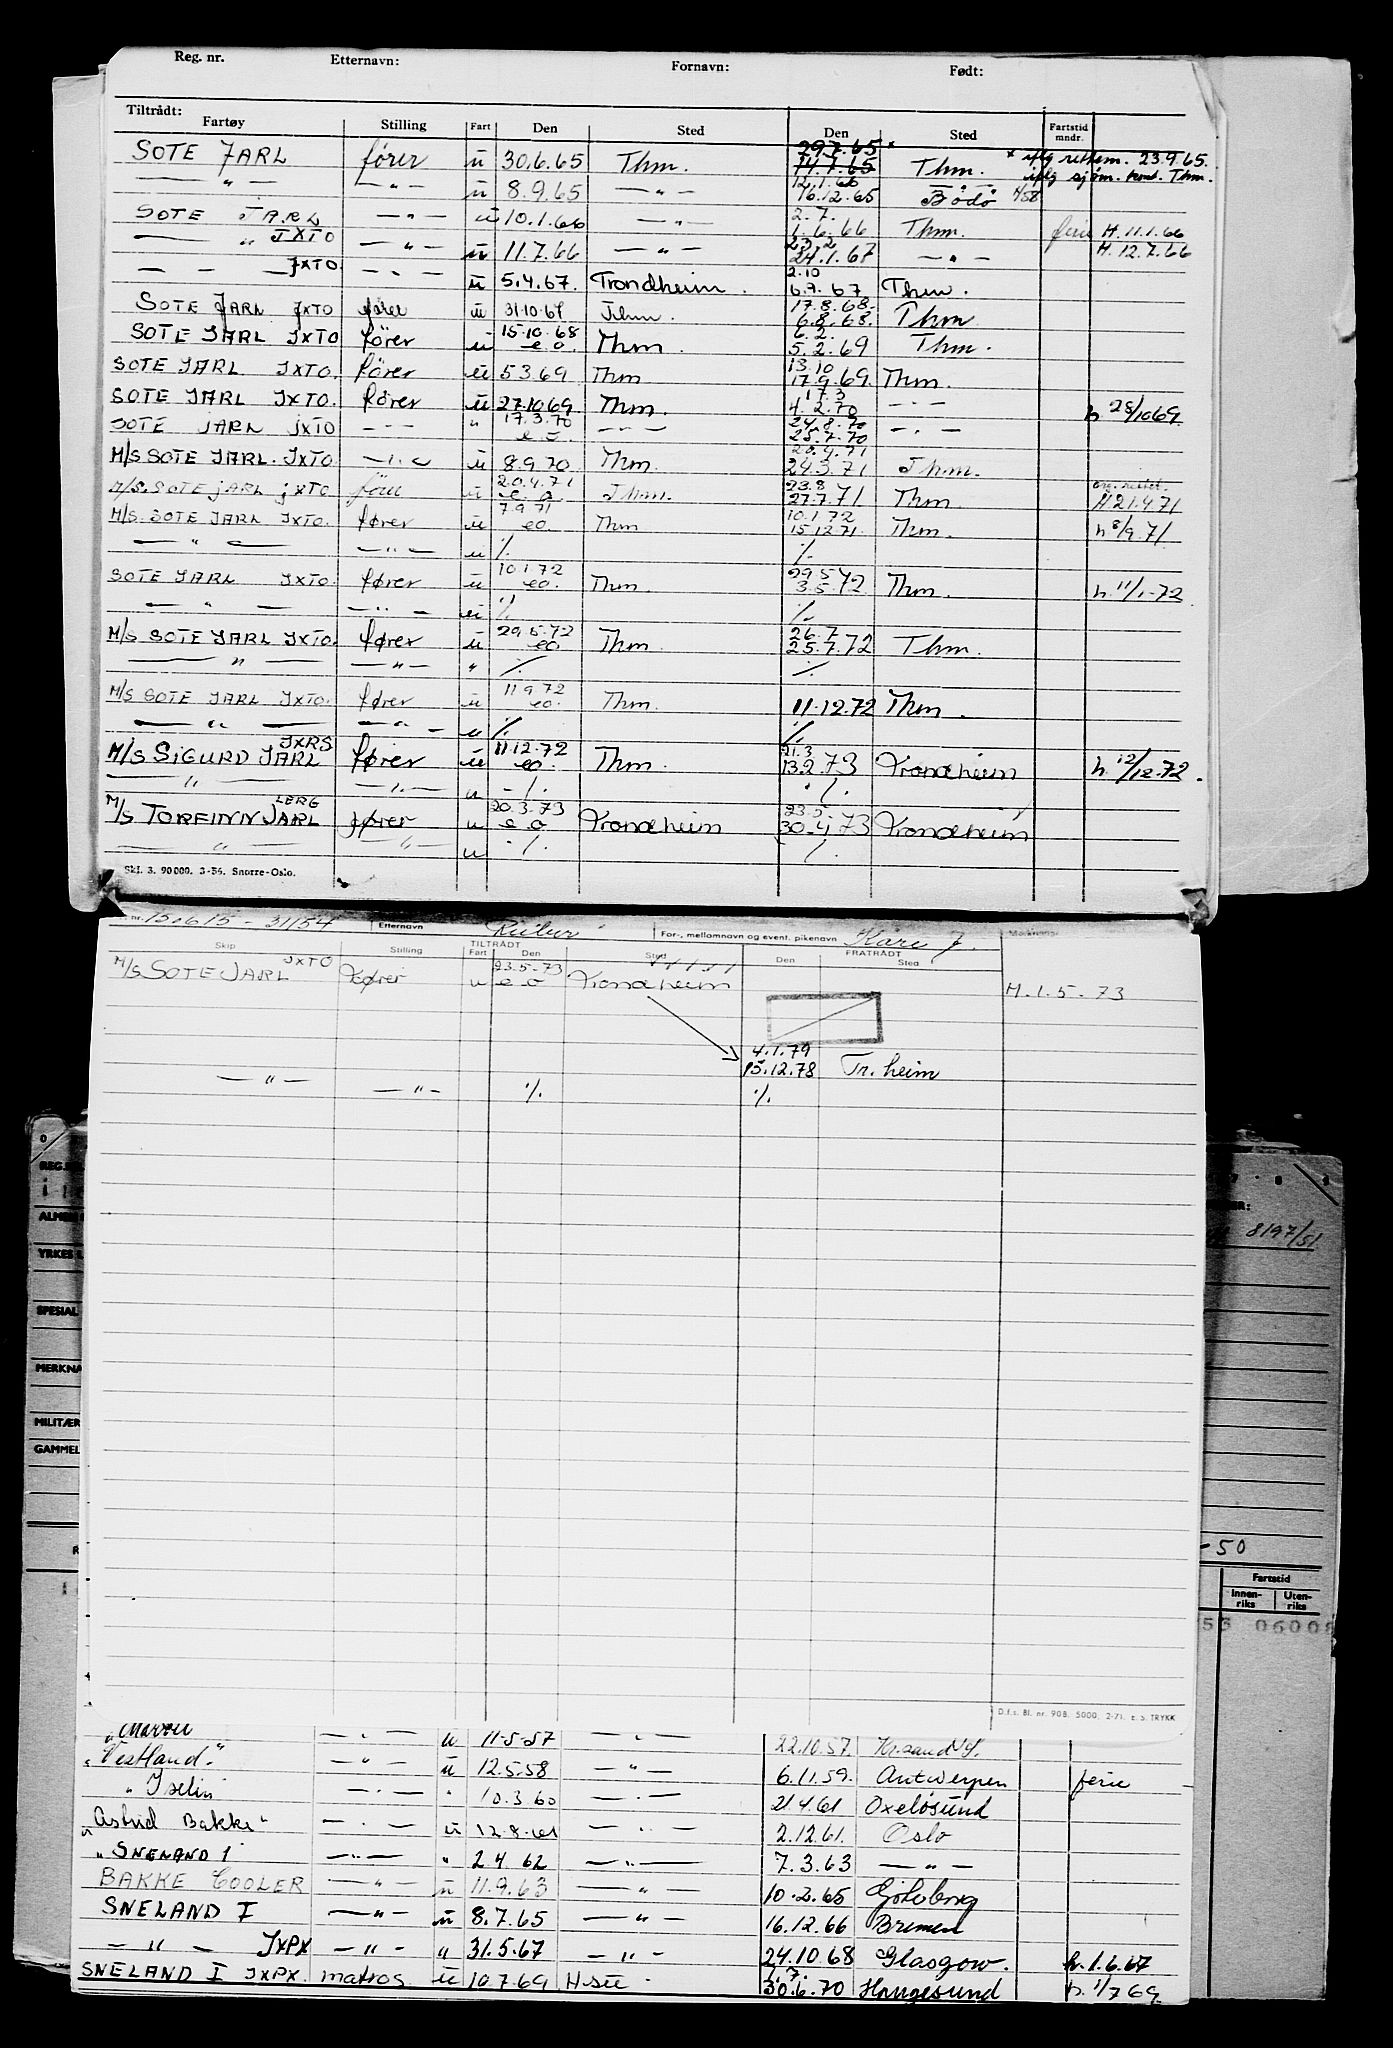 Reg. nr. Etternavn: Fornavn: Født:
Tiltrådt:
Fartøy Stilling Fart Den Sted Den Sted Fartstid mndr.
29.7.65 x
SOTE JARL fører u 30.6.65 Thm. 14.7.65 Thm. x iflg rettem. 23.9.65.
iflg sjøm. kont. Thm.
12.1.66
— " — — " — u 8.9.65 — " — 16.12.65 Bodö 4/58
2.7.
SOTE JARL — " — u 10.1.66 — " — 1.6.66 Thm. ferie H. 11.1.66
23.2
— " JXTO — " — u 11.7.66 — " — 24.1.67 — " — H. 12.7.66
2.10
— — — JXTO — " — u 5.4.67. Trondheim. 6.9.67 Thm.
17.8.68.
SOTE JARL JXTO fører u 31.10.67 Thm. 6.8.68. Thm
15.10.68 6.2.
SOTE JARL JXTO fører u e o. Thm. 5.2.69 Thm.
13.10
SOTE JARL JXTO. fører u 5.3.69 Thm 17.9.69. Thm.
17.3
SOTE JARL JXTO. fører u 27.10.69 Thm. 4.2.70 — " — h 28/10.69
17.3.70 24.8.70
SOTE JARL JXTO — " — " e o. — " — 25.7.70 — " —
20.4.71
M/S SOTE JARL. JXTO — " — u 8.9.70 Thm. 24.3.71 Thm.
20.4.71 23.8
M/S. SOTE JARL JXTO fører u e o. Thm. 27.7.71 Thm. H 21.4.71
7.9.71 10.1.72
M/S. SOTE JARL JXTO. fører u eo. Thm 15.12.71. Thm. h 8/9.71.
— " — — " — u ./. ./.
10.1.72 29.5
SOTE JARL JXTO. fører u eo. Thm. 3.5.72 Thm. h. 11/1-72
— " — — " — u ./. ./.
29.5.72 26.7
M/S SOTE JARL JXTO. fører u eo. Thm. 25.7.72 Thm.
— " — — " — " ./. ./.
11.9.72
M/S SOTE JARL JXTO. fører u eo. Thm. 11.12.72 Thm.
— " — — " — u ./. ./.
JXRS 11.12.72 21.3
M/S SIGURD JARL fører u eo. Thm. 13.2.73 Trondheim h. 12/12.72.
— " — — " — u ./. ./.
LERG 20.3.73 23.5
M/S TORFINN JARL fører u e o Trondheim 30.4.73 Trondheim
— " — — " — u ./. ./.
Skf. 3. 90000. 3-56. Snorre-Oslo.
nr. 150615 - 31154 Etternavn For-, mellomnavn og event. pikenavn Kåre J. Merknader
TILTRÅDT FRATRÅDT
Skip Stilling Fart Den Sted Den Sted
JXTO 23.5.73
M/S SOTE JARL fører u e o Trondheim H. 1.5.73
4.1.79
15.12.78 Tr.heim
— " — — " — ./. ./.
REG.NR.
ALMEN
YRKES
SPESIAL
MERKNA
MILITÆR
GAMMEL
8197/51
-50
Fartstid
Innenriks Utenriks
D.f.s. Bl. nr. 908. 5000. 2-71. E.S. TRYKK
— " — u 11-5-57 — " — 22.10.57. Kr.sand S.
"Vestland" — " — u 12.5.58 — " — 6.11.59. Antwerpen ferie
" Iselin — " — " 10.3.60 — " — 21.4.61 Oxelösund
"Astrid Bakke" — " — u 12.8.61 — " — 2.12.61. Oslo
" SNELAND I — " — " 2.4.62 — " — 7.3.63 — " —
BAKKE COOLER — " — u 11.9.63 — " — 10.2.65 Göteborg
SNELAND I — " — u 8.7.65 — " — 16.12.66 Bremen
— " — JXPX — " — " 31.5.67 — " — 24.10.68 Glasgow. h. 1.6.67
SNELAND I JXPX. matros u 10.7.69 H.su 30.6.70 Haugesund h. 1/7 69.